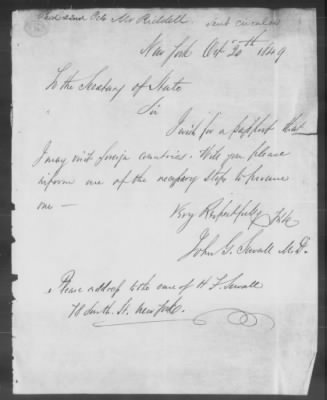 Recd 22nd Oct. Mr Riddell. send circular
New York Oct 20th 1849
To the Secretary of State
Sir
I wish for a passport that
I may visit foreign countries. Will you please
inform me of the necessary steps to procure
one —
Very Respectfully
John G. Sewall M.D.
Please address to the care of H F Sewall
78 South. St. New York.